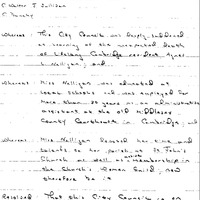 C Walter J Sullivan
C Murphy
Whereas The City Council was deeply saddened
at learning of the unexpected death
of lifelong Cambridge resident Agnes
L. Nelligan, and
Whereas Miss Nelligan was educated at
schools and was employed for
more than 50 years as an administrative
assistant at the old Middlesex
County Courthouse in Cambridge, and
Whereas Miss Nelligan devoted her time and
talents to her parish at St John's
Church as well as active membership in
the Church's Women Guild, now
therefore be it
Resolved That this City Council go on